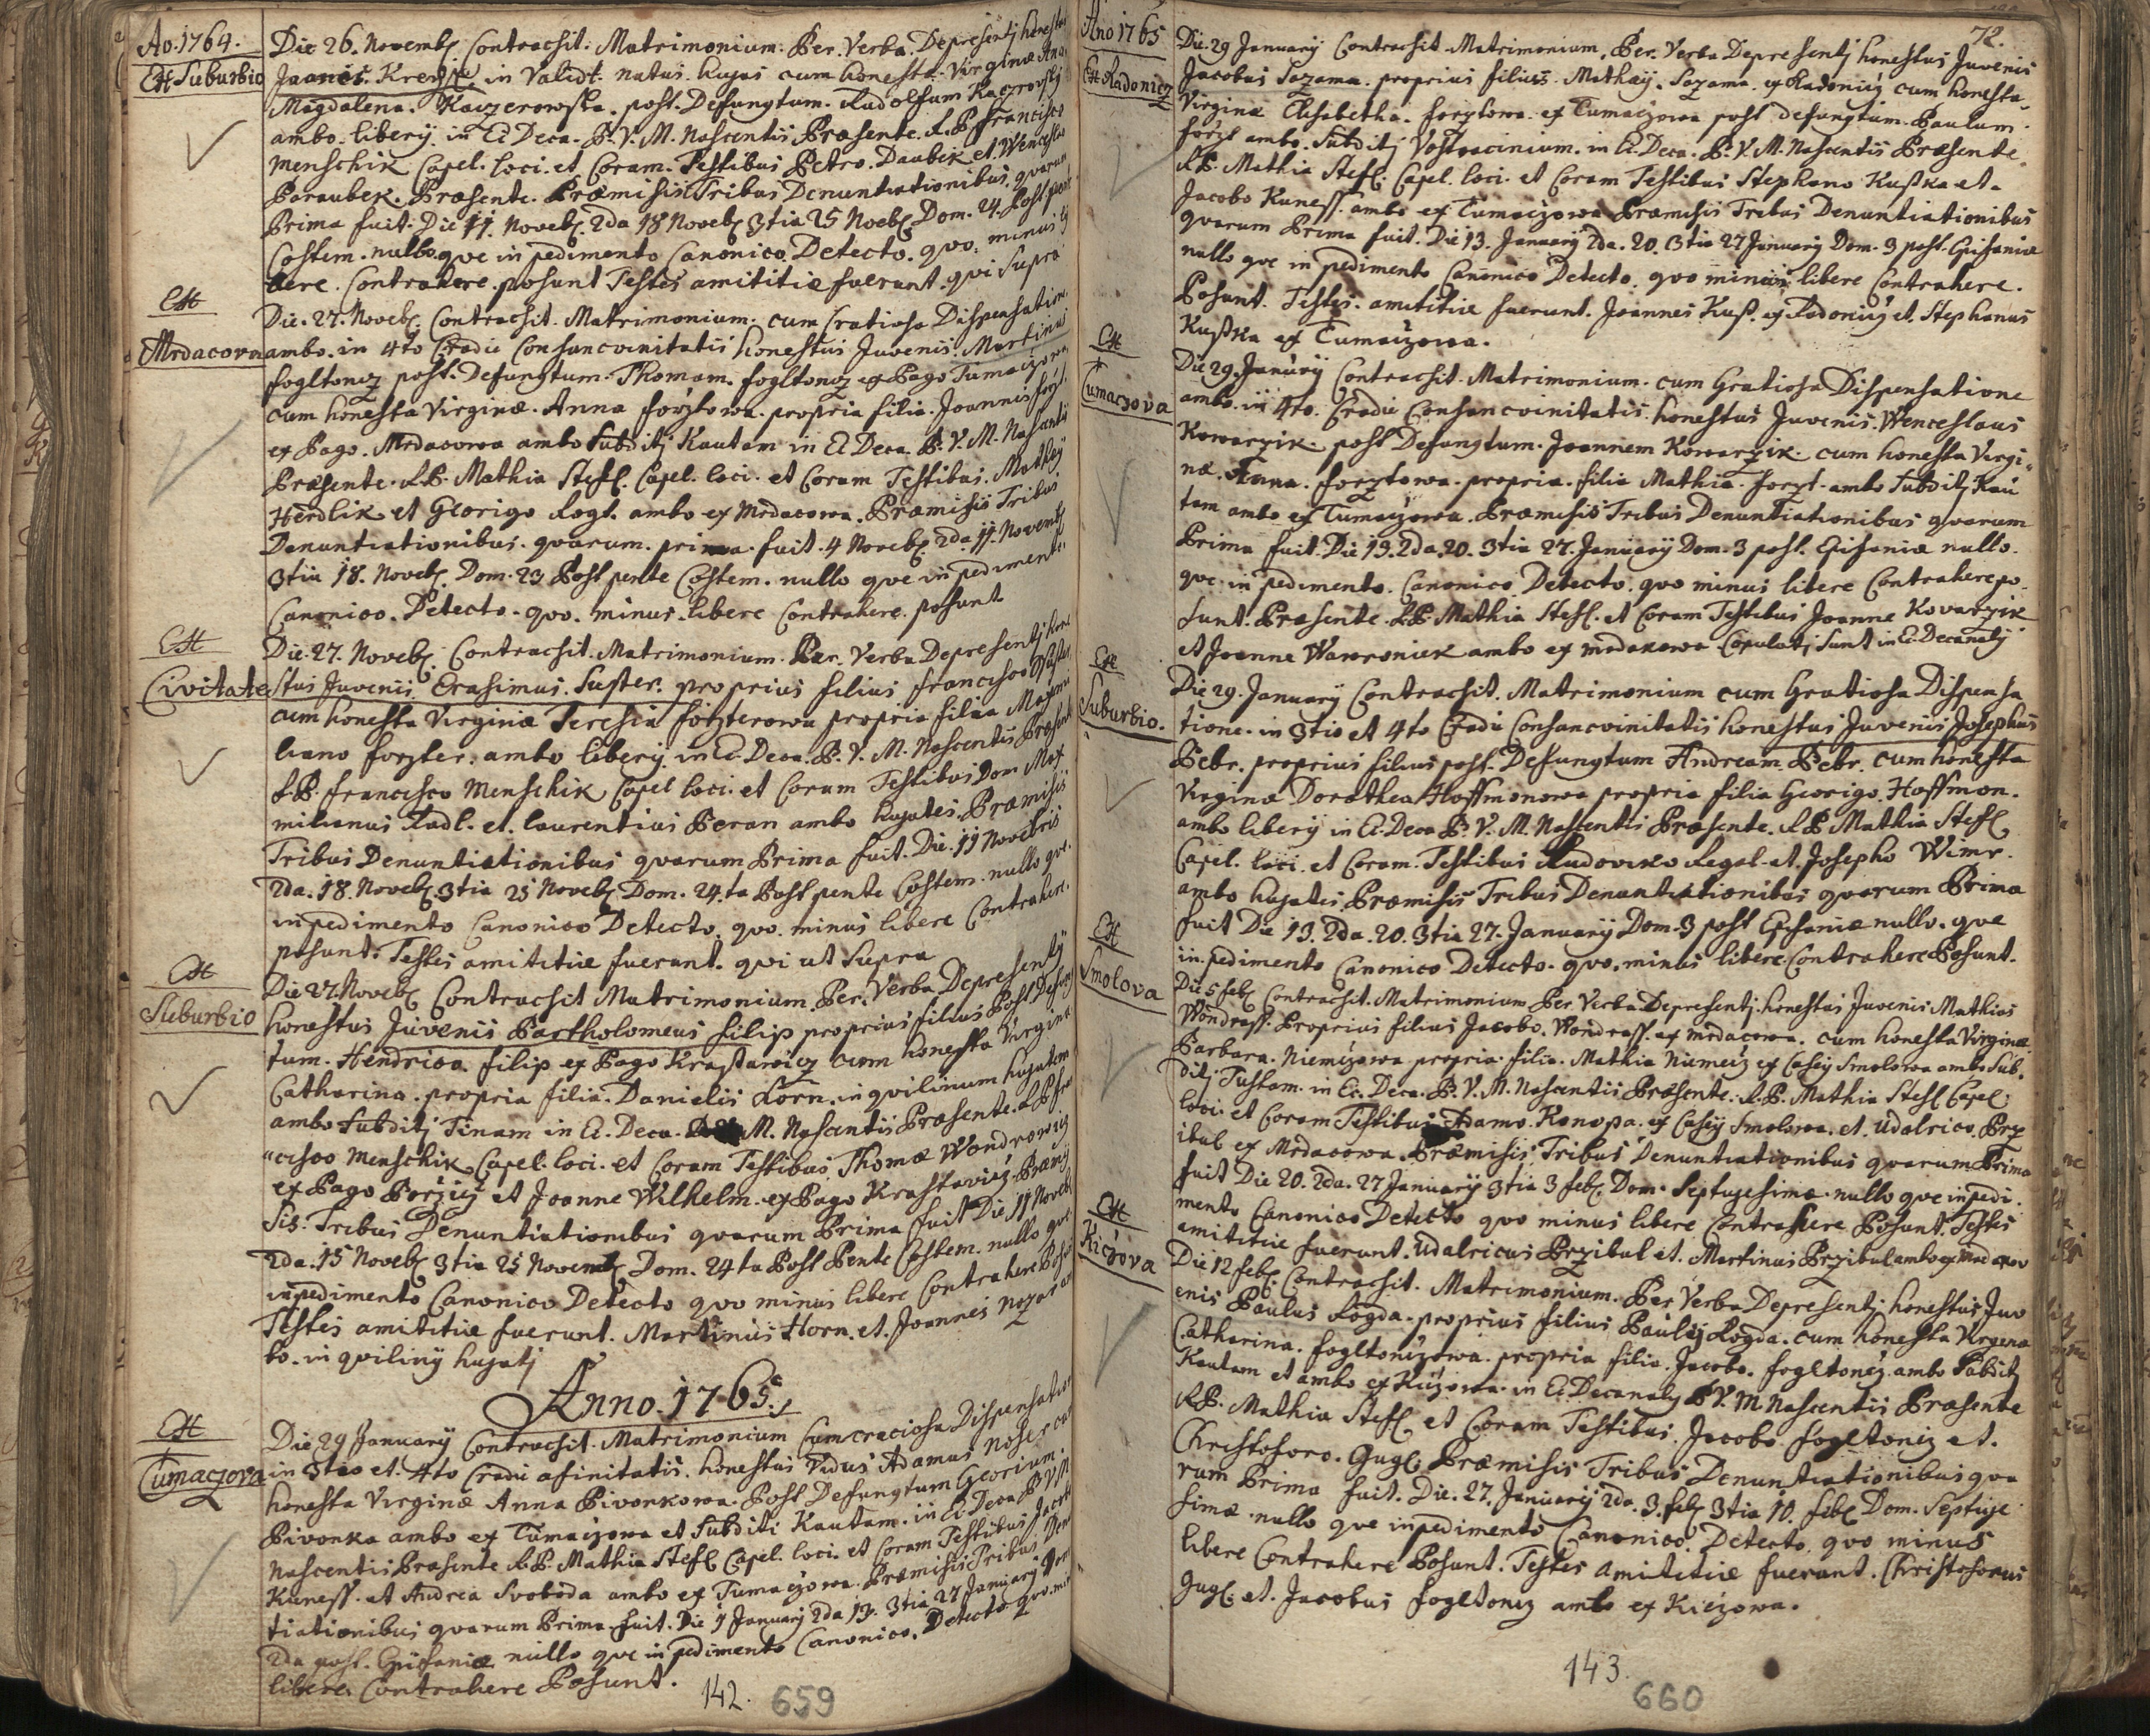 Ao. 1764.
Ex Suburbio
Die 26. Novemb. Contrachit. Matrimonium. Per. Verba. Depresentj honestus
in Validt. natus. hujas cum honesta. Virginæ Ana
Magdalena. post. Defungtum. Rudolfum
ambo. liberÿ. in Ec Deca. B. V. M. Nascentis Præsente. R. P. francisco
Menschik Capel. loci. et Coram. Testibus Petro. Daubek. et. Wenceslao
Paraubek. Præsente. Præmisis Tribus Denuntiationibus. qvarum
Prima fuit. Die 11. Noveb. 2da 18 Noveb. 3tia 25 Noeb. Dom. 24. Post pent
Costem. nullo qve in pedimento Canonico. Detecto. qvo. minus li
bere. Contrahere. posunt Testes amititiæ fuerunt. qvi Supra
Ex
Mrdacova
Die. 27. Noveb. Contrachit. Matrimonium. cum Gratiosa Dispensatione
ambo. in 4to Gradu Consancvinitatis honestus Juvenis. Martinus
fogltonez post. Defungtum. Thomam. fogltonez ex Pago Tumaczowa
cum honesta Virginæ. Anna forztowa. propria filia. Joannis forzt
ex Pago. Mrdacowa ambo Subditj Kautam in Ec Deca. B. V. M. Nascentis
Præsente. R. P. Mathia Stefl. Capel. loci. et Coram Testibus. Mathej
Herdlik et Georigo Rogl. ambo ex Mrdacowa. Præmisis Tribus
Denuntiationibus. qvarum. prima. fuit. 4 Noveb. 2da 11. Novemb.
3tia 18. Noveb. Dom. 23 Post pente Costem. nullo qve in pediment
Canonico. Detecto. qvo. minus. libere Contrahere. posunt
Ex
Civitate
Die. 27. Noveb. Contrachit. Matrimonium. Per. Verba Depresentj hone
stus Juvenis. Erasimus. Suster. proprius filius francisco
cum honesta Virginæ Teresia forzterowa propria filia Maxmi
liano forzter. ambo liberÿ. in Ec Deca. B. V. M. Nascentis Præsente
R. P. francisco Menschik Capel loci. et Coram Testibus Dom Max
milianus Radl. et. laurentius Beran ambo hujates. Præmisis
Tribus Denuntiationibus qvarum Prima fuit. Die. 11 Novebris
2da. 18. Noveb. 3tia 25 Noveb. Dom. 24.ta Post pente Costem. nullo qve.
in pedimento Canonico Detecto. qvo. minus libere Contrahere.
posunt. Testes amititiæ fuerunt. qvi ut Supra
Ex
Suburbio
Die 27. Noveb. Contrachit Matrimonium. Per. Verba Depresentÿ
honestus Juvenis Bartholomeus filip proprius filius Post Defung
tum. Hendrico. filip ex Pago cum honesta Virginæ
Catharina. propria filia. Danielis Korn. inqvilinum hujatem
ambo Subditj Tinam in Ec. Deca. M. Nascentis Præsente. R P fran
cisco Menschik. Capel. loci. et Coram Testibus. Thomæ Wondrowicz
ex Pago et Joanne Wilhelm. ex Pago Præmi
sis. Tribus Denuntiationibus qvarum Prima fuit Die 11 Noveb.
2da. 15 Noveb. 3tia 25 Novemb. Dom. 24ta Post Pente Costem. nullo qve
inpedimento Canonico Detecto qvo minus libere Contrahere Posu
Testes amititiæ fuerunt. Martinus Horn. et. Joannes
bo. in qviliny hujatj
Anno. 1765.
Ex
Tumaczova
Die 29 January Contrachit. Matrimonium Cum graciosa Dispensation
in 3tio et. 4to Gradu afinitatis. honestus Vidus Adamus
honesta Virginæ Anna Pivonkowa. Post Defungtum Georium.
Pivonka ambo ex Tumaczowa et Subditi Kautam. in Ec. Deca B V M
Nascentis Præsente R. P. Mathia Stefl Capel. loci. et Coram Testibus Jacob
Kuness. et Andrea Svoboda ambo ex Tumaczowa. Præmisis Tribus Denun
tiationibus qvarum Prima. fuit. Die January 2da 13. 3tia 27 January Dom
2da post. Epifaniæ nullo qve in pedimento Canonico. Detecto qvo. min
libere. Contrahere Posunt.
142. 659
Ano 1765
72.
Ex Radonicz
Die. 29 January Contrachit. Matrimonium. Per. Verba Depresentj honestus Juvenis
Jacobus Sazama. proprius filius. Mathæÿ. Sazama. ex Radonicz cum honesta
Virginæ Elisabetha. forztowa. ex Tumaczowa post defungtum. Paulum.
forzt ambo. Subditj in Ec. Deca. B. V. M. Nascentis Præsente.
R P. Mathia Stefl. Capel. loci. et Coram Testibus Stephano Kußka et.
Jacobo Kuness. ambo ex Tumaczowa Præmisis Tribus Denuntiationibus
qvarum Prima fuit. Die 13. January 2da. 20. 3tia 27 January Dom. 3 post. Epifaniæ
nullo qve in pedimento Canonico Detecto. qvo minus libere Contrahere.
Posunt. Testes. amititiæ fuerunt. Joannes Kuß. ex Radonicz et. Stephanus
Kußka ex Tumaczowa.
Ex
Tumaczova
Die 29. January Contrachit. Matrimonium. cum Gratiosa Dispensatione
ambo. in 4to. Gradu Consancvinitatis. honestus Juvenis. Wenceslaus
Kowarzik. post Defungtum. Joannem Kowarzik. cum honesta Virgi
næ. Anna. forztowa. propria. filia Mathia. forzt. ambo Subditj Kau
tam ambo ex Tumaczowa. Præmisis Tribus Denuntiationibus qvarum
Prima fuit. Die 13. 2da. 20. 3tia 27. January Dom. 3 post. Epifaniæ nullo.
qve in pedimento. Canonico. Detecto. qvo minus libere Contrahere po
sunt. Præsente. R. P. Mathia Stefl. et Coram Testibus Joanne Kovarzik
et Joanne Wawroniek ambo ex mrdakowa Copulatj Sunt in Ec. Decanalj
Ex
Suburbio.
Die 29. January Contrachit. Matrimonium cum Gratiosa Dispensa
tione. in 3tio et 4to Gradu Consancvinitatis honestus Juvenis Josephus
Pebr. proprius filius post. Defungtum Andream. Pebr. cum honesta
Virginæ Dorothea Hoffmonowa propria filia Georigo. Hoffmon.
ambo liberÿ in Ec. Deca B. V. M. Nascentis Præsente. R P. Mathia Stefl
Capel. loci. et Coram. Testibus Ludoviko Regal. et. Josepho Wimr.
ambo hujates. Præmisis Tribus Denuntiationibus qvarum Prima
fuit Die 13. 2da. 20. 3tia 27. January Dom. 3 post Epifaniæ nullo. qve
in. pedimento Canonico Detecto. qvo. minus libere Contrahere Posunt.
Ex
Smolova
Die 5 feb. Contrachit. Matrimonium Per Verba Depresentj. honestus Juvenis Mathias
Wondrass. Proprius filius Jacobo. Wondrass. ex mrdacowa. cum honesta Virginæ
Barbara. Niemczowa propria. filia. Mathia Niemecz ex Casÿ Smolowa ambo Sub.
ditj Tustam. in Ec. Deca. B. V. M. Nascentis Præsente. R. P. Mathia Stefl Capel.
loci. et Coram Testibus Adamo. Konopa. ex Casÿ Smolowa. et. Udalrico. Prz
ibul ex Mrdacowa. Præmisis Tribus Denuntiationibus qvarum Prima
fuit Die 20. 2da. 27 January 3tia 3 feb. Dom. Septugesimæ. nullo qve inpedi.
mento Canonico Detecto qvo minus libere Contrahere Posunt. Testes
amititiæ fuerunt. Udalricus Przibul et. Martinus Przibul ambo ex
Ex
Kiczova
Die 12 feb. Contrachit. Matrimonium. Per Verba Depresentj honestus Juv
enis Paulus Rogda. proprius filius Paulÿ Rogda. cum honesta Virgenæ
Catharina. fogltonczowa. propria filia. Jacobo. fogltoncz. ambo Subditj
Kautam et ambo ex Kiczowa. in Ec Decanalj B V. M Nascentis Præsente
R P. Mathia Stefl. et Coram Testibus. Jacobo fogltoncz et.
Christoforo. Gugl. Præmisis Tribus Denuntiationibus qva
rum Prima fuit. Die. 27. January 2da. 3. feb. 3tia 10. feb. Dom. Septuge
simæ. nullo qve inpedimento Canonico. Detecto. qvo minus
libere Contrahere Posunt. Testes amititiæ fuerunt. Christoforus
Gugl. et. Jacobus fogltoncz ambo ex Kiczowa.
143. 660